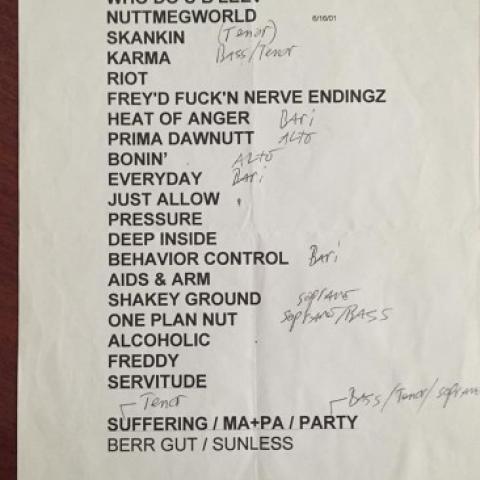 NUTTMEGWORLD 6/16/01
SKANKIN (Tenor)
KARMA Bass/Tenor
RIOT
FREY'D FUCK'N NERVE ENDINGZ
HEAT OF ANGER Bari
PRIMA DAWNUTT ALTO
BONIN' ALTO
EVERYDAY Bari
JUST ALLOW
PRESSURE
DEEP INSIDE
BEHAVIOR CONTROL Bari
AIDS & ARM
SHAKEY GROUND soprano
ONE PLAN NUT soprano/BASS
ALCOHOLIC
FREDDY
SERVITUDE
Tenor Bass/Tenor/soprano
SUFFERING / MA+PA / PARTY
BERR GUT / SUNLESS